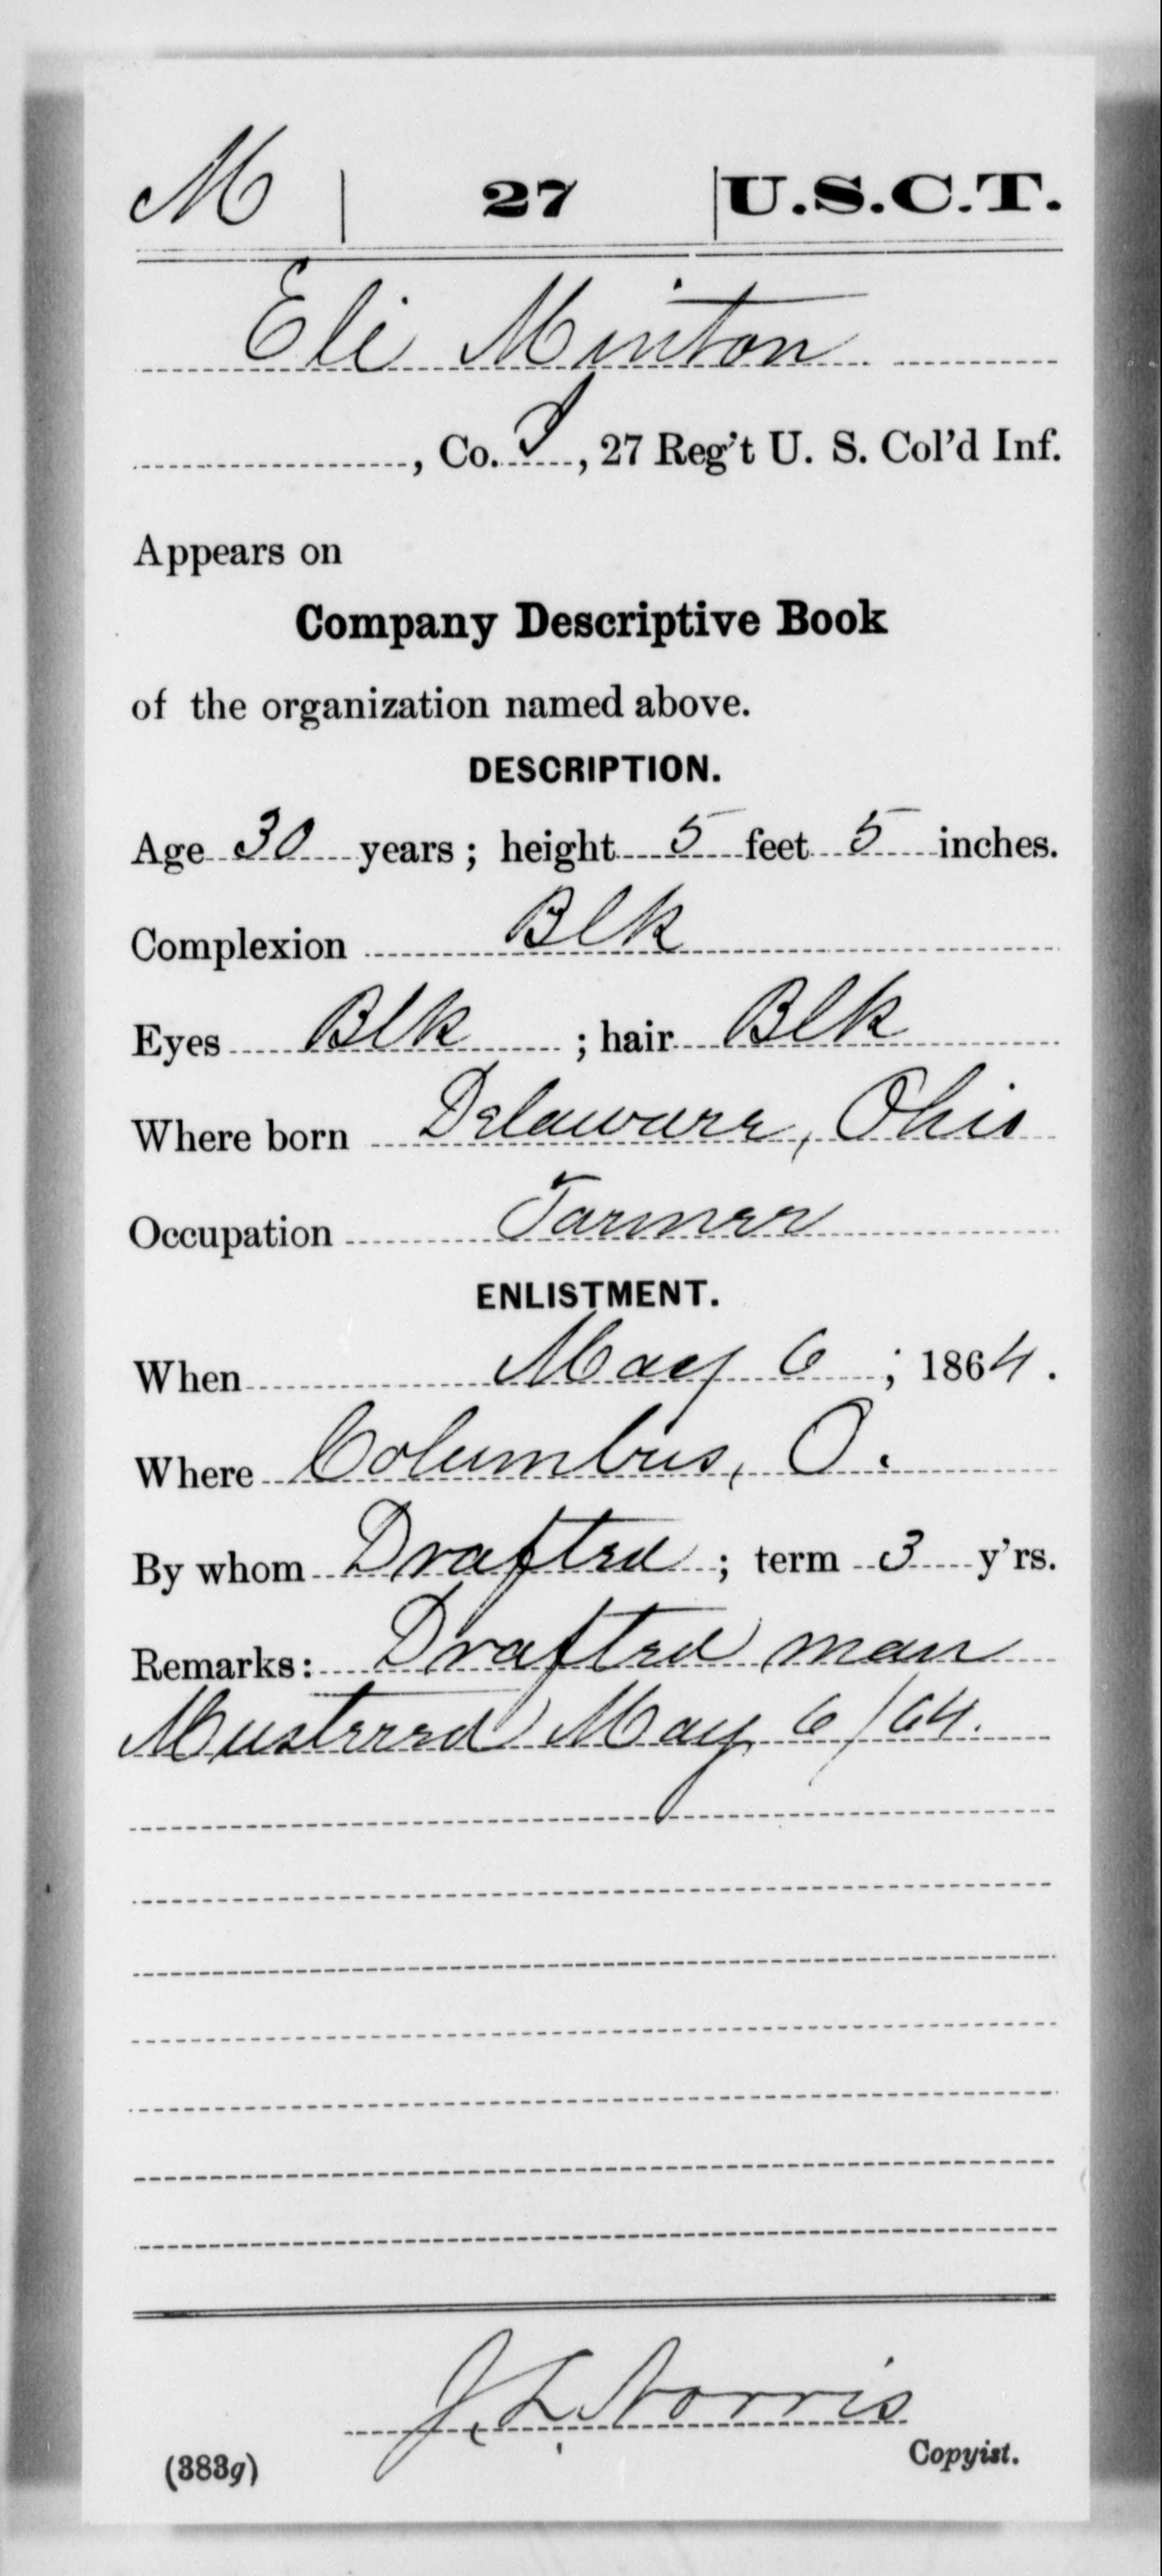 M | 27 | U.S.C.T.
Eli Minton
, Co. I, 27 Reg't U. S. Col'd Inf.
Appears on
Company Descriptive Book
of the organization named above.
DESCRIPTION.
Age 30 years; height 5 feet 5 inches.
Complexion Blk
Eyes Blk; hair Blk
Where born Delaware, Ohio
Occupation Farmer
ENLISTMENT.
When May 6; 1864.
Where Columbus, O.
By whom Drafted; term 3 y'rs.
Remarks: Drafted man
Mustered May 6/64.
J. L. Norris
(383g) Copyist.